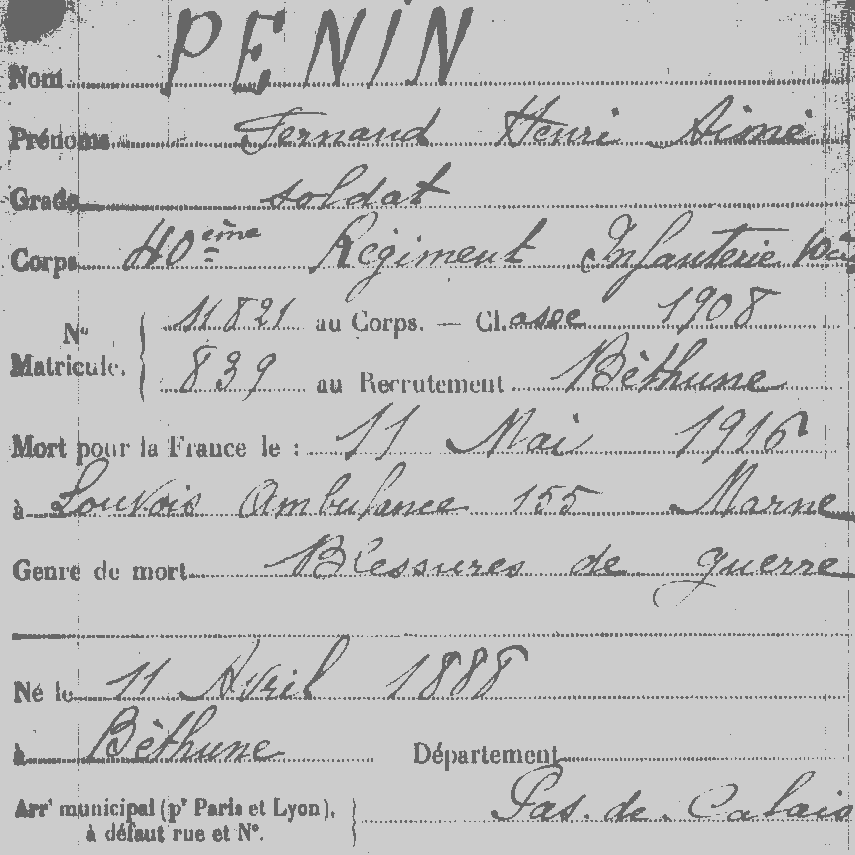 Nom PENIN
Prénoms Fernand Henri Aimé
Grade soldat
Corps 40ème Régiment Infanterie
N° Matricule. 11821 au Corps. — Classe 1908
839 au Recrutement Béthune
Mort pour la France le : 11 Mai 1916
à Louvois Ambulance 155 Marne
Genre de mort Blessures de guerre
Né le 11 Avril 1888
à Béthune Département
Arrt municipal (pr Paris et Lyon), Pas. de. Calais
à défaut rue et N°.